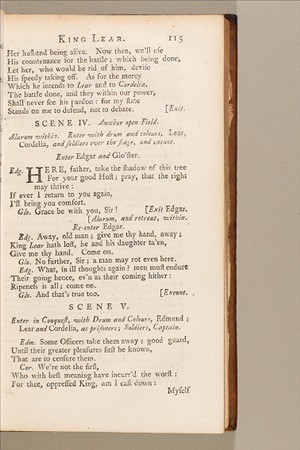 KING LEAR. 115
Her huſband being alive. Now then, we'll uſe
His countenance for the battle; which being done,
Let her, who would be rid of him, deviſe
His ſpeedy taking off. As for the mercy
Which he intends to Lear and to Cordelia,
The battle done, and they within our power,
Shall never ſee his pardon: for my ſtate
Stands on me to defend, not to debate. [Exit.
SCENE IV. Another open Field.
Alarum within. Enter with drum and colours, Lear,
Cordelia, and ſoldiers over the ſtage, and exeunt.
Enter Edgar and Glo'ſter.
Edg. HERE, father, take the ſhadow of this tree
For your good Hoſt; pray, that the right
may thrive:
If ever I return to you again,
I'll bring you comfort.
Glo. Grace be with you, Sir! [Exit Edgar.
[Alarum, and retreat, within.
Re-enter Edgar.
Edg. Away, old man; give me thy hand, away;
King Lear hath loſt, he and his daughter ta'en,
Give me thy hand. Come on.
Glo. No further, Sir; a man may rot even here.
Edg. What, in ill thoughts again? men muſt endure
Their going hence, ev'n as their coming hither:
Ripeneſs is all; come on.
Glo. And that's true too. [Exeunt.
SCENE V.
Enter in Conqueſt, with Drum and Colours, Edmund;
Lear and Cordelia, as priſoners; Soldiers, Captain.
Edm. Some Officers take them away: good guard,
Until their greater pleaſures firſt be known,
That are to cenſure them.
Cor. We're not the firſt,
Who with beſt meaning have incurr'd the worſt:
For thee, oppreſſed King, am I caſt down:
Myſelf